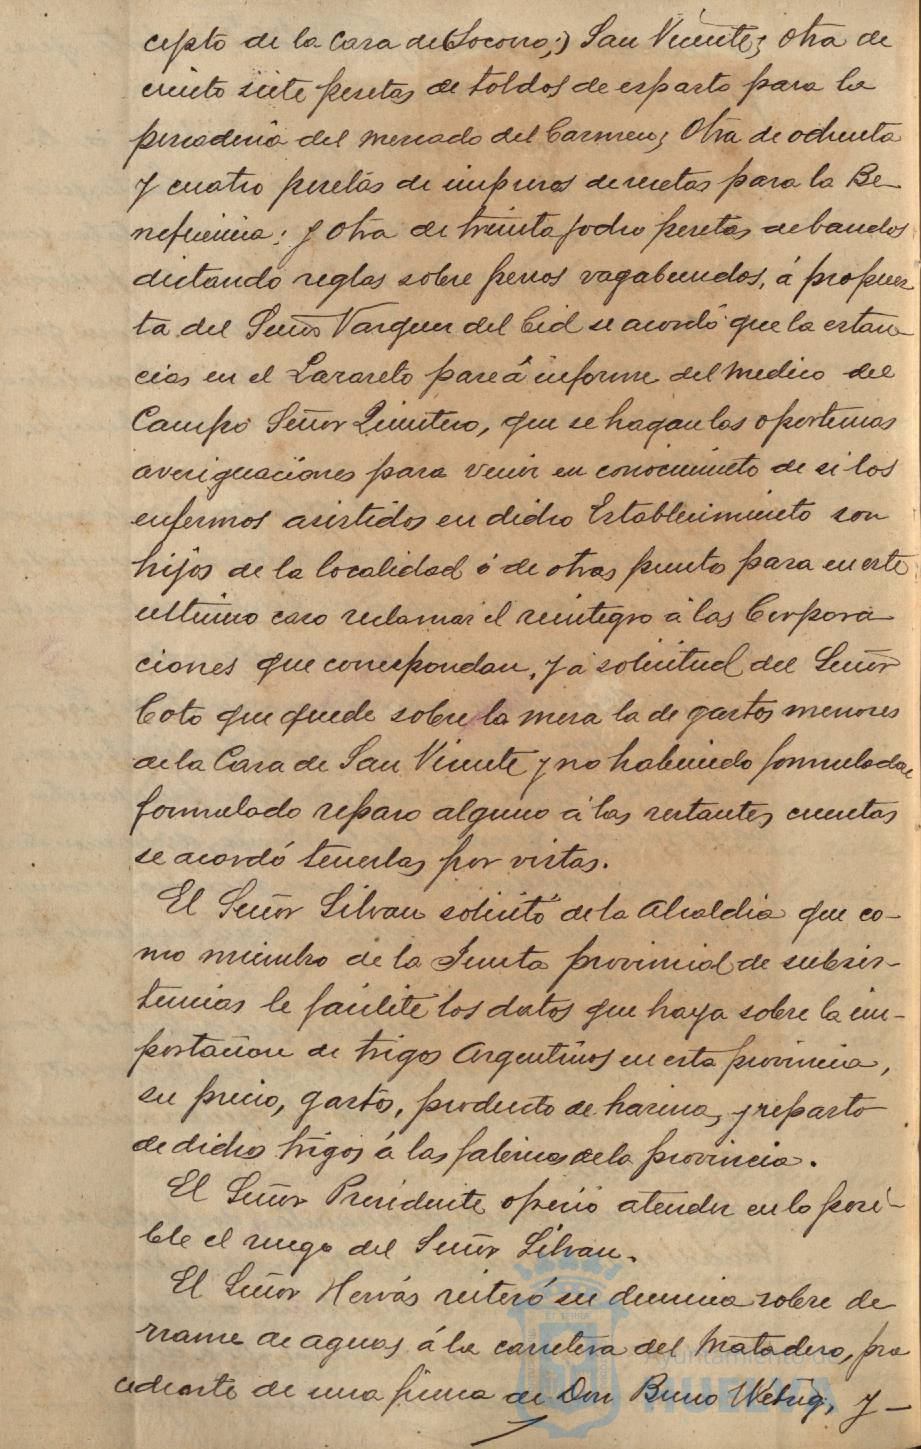 cepto de la Casa de (Socorro;) San Vicente; otra de
ciento siete pesetas de toldos de esparto para la
pescaderia del mercado del Carmen; Otra de ochenta
y cuatro pesetas de impresos de recetas para la Be-
neficencia; y Otra de treinta y ocho pesetas de bandos
dictando reglas sobre perros vagabundos, á propues
ta del Señor Vazquez del Cid se acordó que la estan-
cias en el Lazareto pase á informe del medico del
Campo Señor Quintero, que se hagan las oportunas
averiguaciones para venir en conocimiento de si los
enfermos asistidos en dicho Establecimiento son
hijos de la localidad ó de otros punto para en este
ultimo caso reclamar el reintegro á las Corpora-
ciones que correspondan, y á solicitud del Señor
Coto que quede sobre la mesa la de gastos menores
de la Casa de San Vicente y no habiendo formulado
formulado reparo alguno á las restantes cuentas
se acordó tenerlas por vistas.
El Señor Silvan solicitó de la Alcaldia que co-
mo miembro de la Junta provincial de subsis-
tencias le facilite los datos que haya sobre la im-
portacion de trigos Argentinos en esta provincia,
su precio, gastos, producto de harina, y reparto
de dicho trigos á las fabricas de la provincia.
El Señor Presidente ofreció atender en lo posi-
ble el ruego del Señor Silvan.
El Señor Hervás reiteró su denuncia sobre de
rrame de aguas á la carretera del Matadero, pro
cedente de una finca de Don Bruno Wetzig, y-
Ayuntamiento de
HUELVA